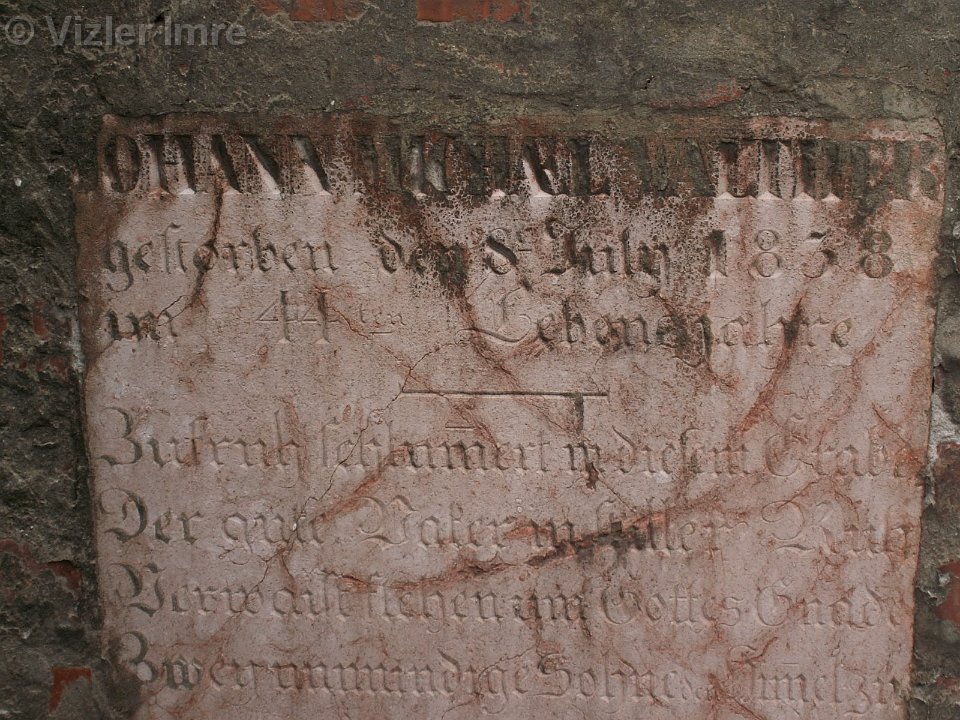 © Vizler Imre
OHANN MICHAEL WALTHER
gestorben den 8t July 1838
im 44ten Lebensjahre
Zu fruh schlum̄ert in diesem Grabe
Der gute Vater in stiller Ruh
Verwaist flehen um Gottes Gnade
Zwey unmündige Sohne dem Him̄el zu